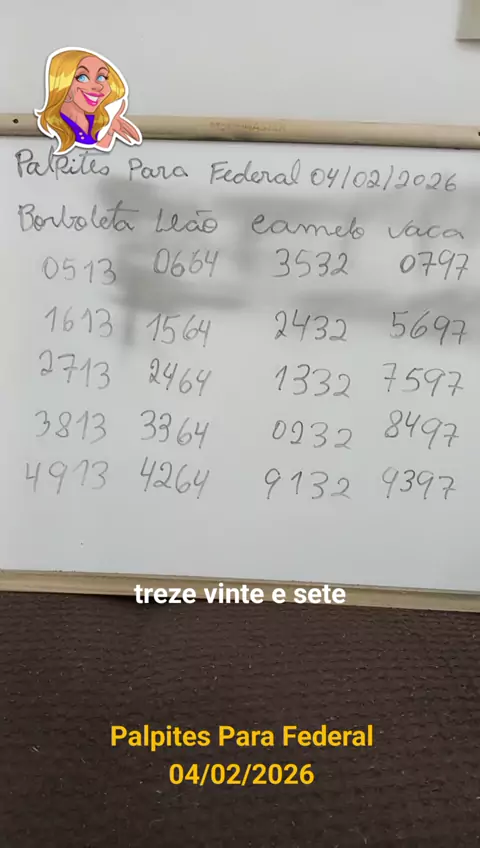 Palpites Para Federal 04/02/2026
Borboleta Leão Camelo Vaca
0513 0664 3532 0797
1613 1564 2432 5697
2713 2464 1332 7597
3813 3364 0232 8497
4913 4264 9132 9397
treze vinte e sete
Palpites Para Federal
04/02/2026